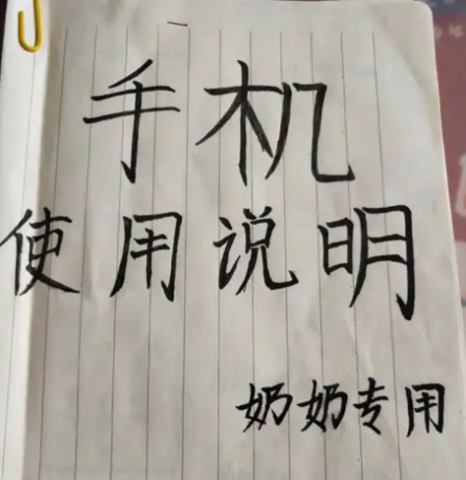 手机
使用说明
奶奶专用